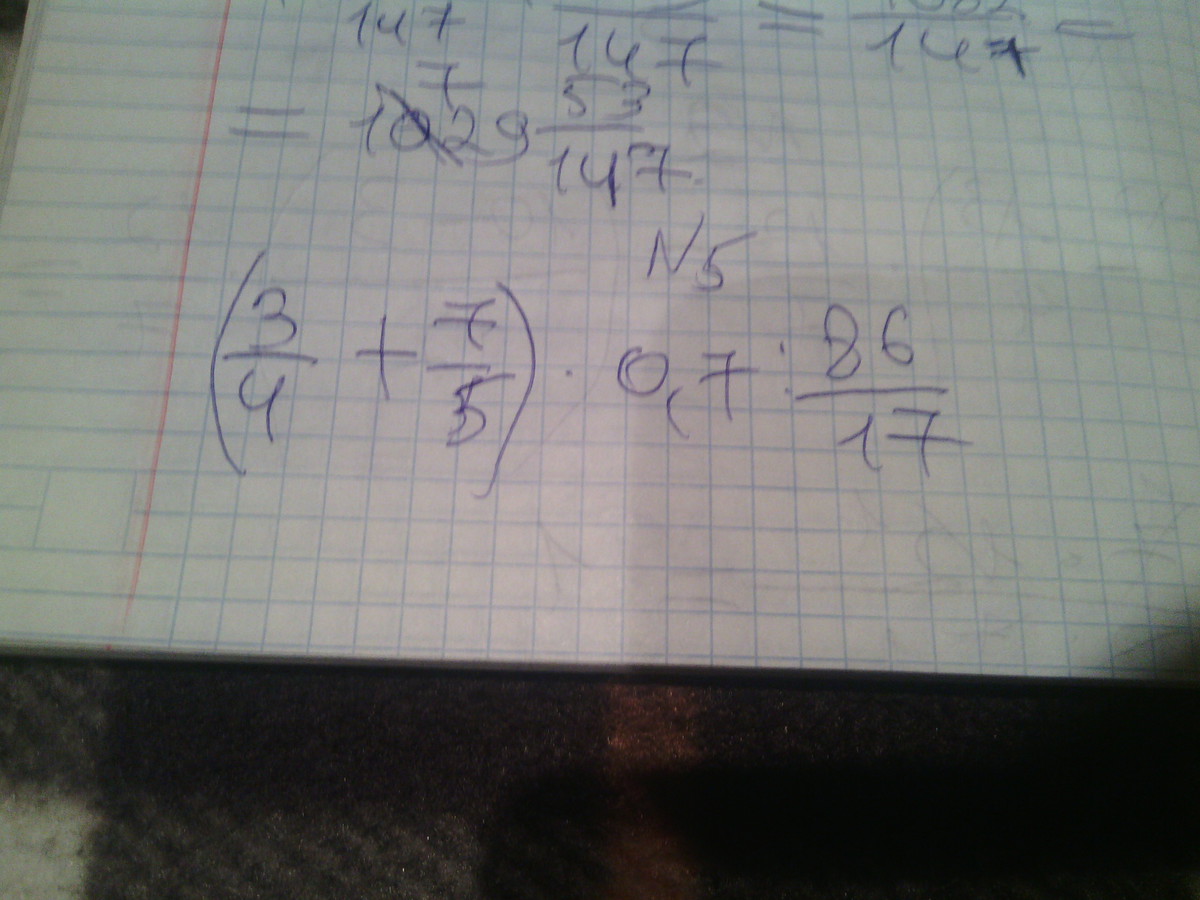 147 147 = 147 =
= 7 53/147
N5
(3/4 + 7/5) · 0,7 : 86/17